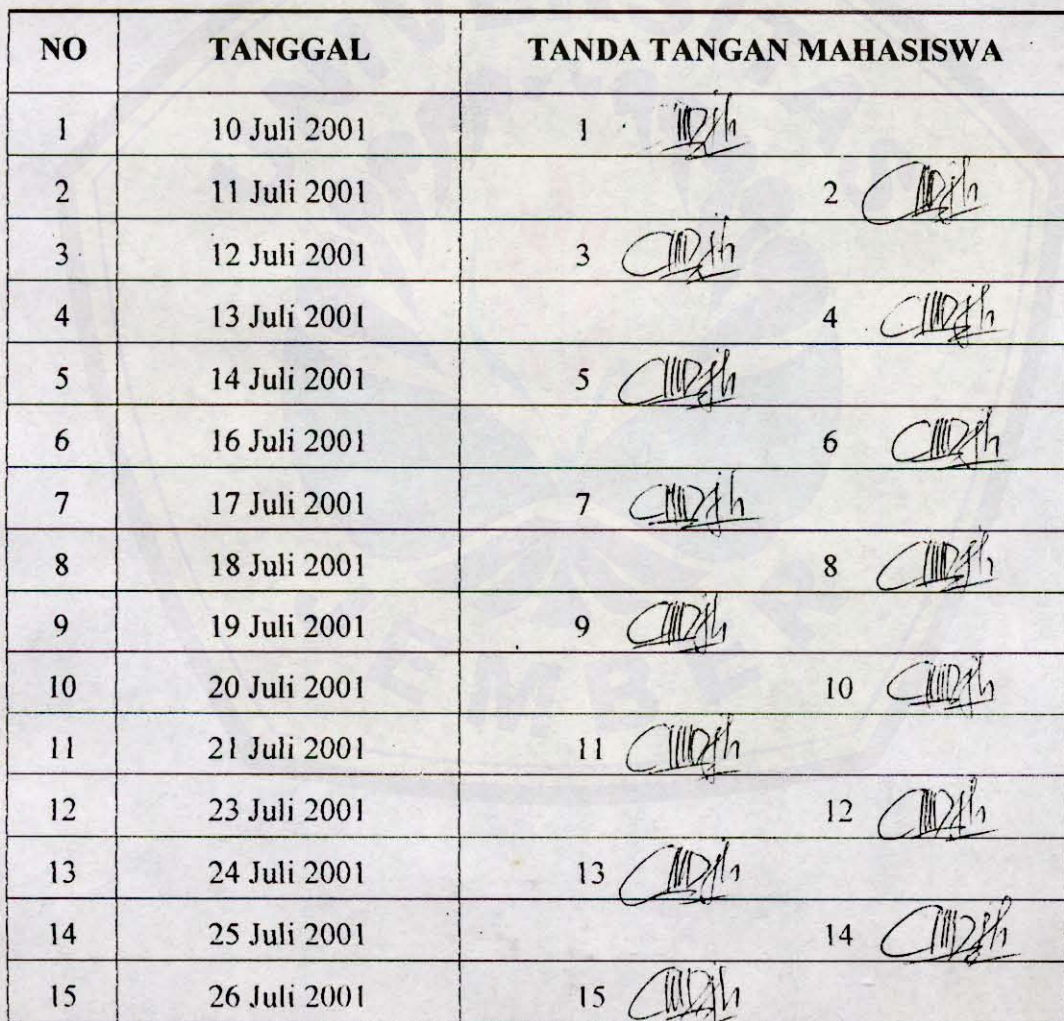 NO TANGGAL TANDA TANGAN MAHASISWA
1 10 Juli 2001 1
2 11 Juli 2001 2
3 12 Juli 2001 3
4 13 Juli 2001 4
5 14 Juli 2001 5
6 16 Juli 2001 6
7 17 Juli 2001 7
8 18 Juli 2001 8
9 19 Juli 2001 9
10 20 Juli 2001 10
11 21 Juli 2001 11
12 23 Juli 2001 12
13 24 Juli 2001 13
14 25 Juli 2001 14
15 26 Juli 2001 15